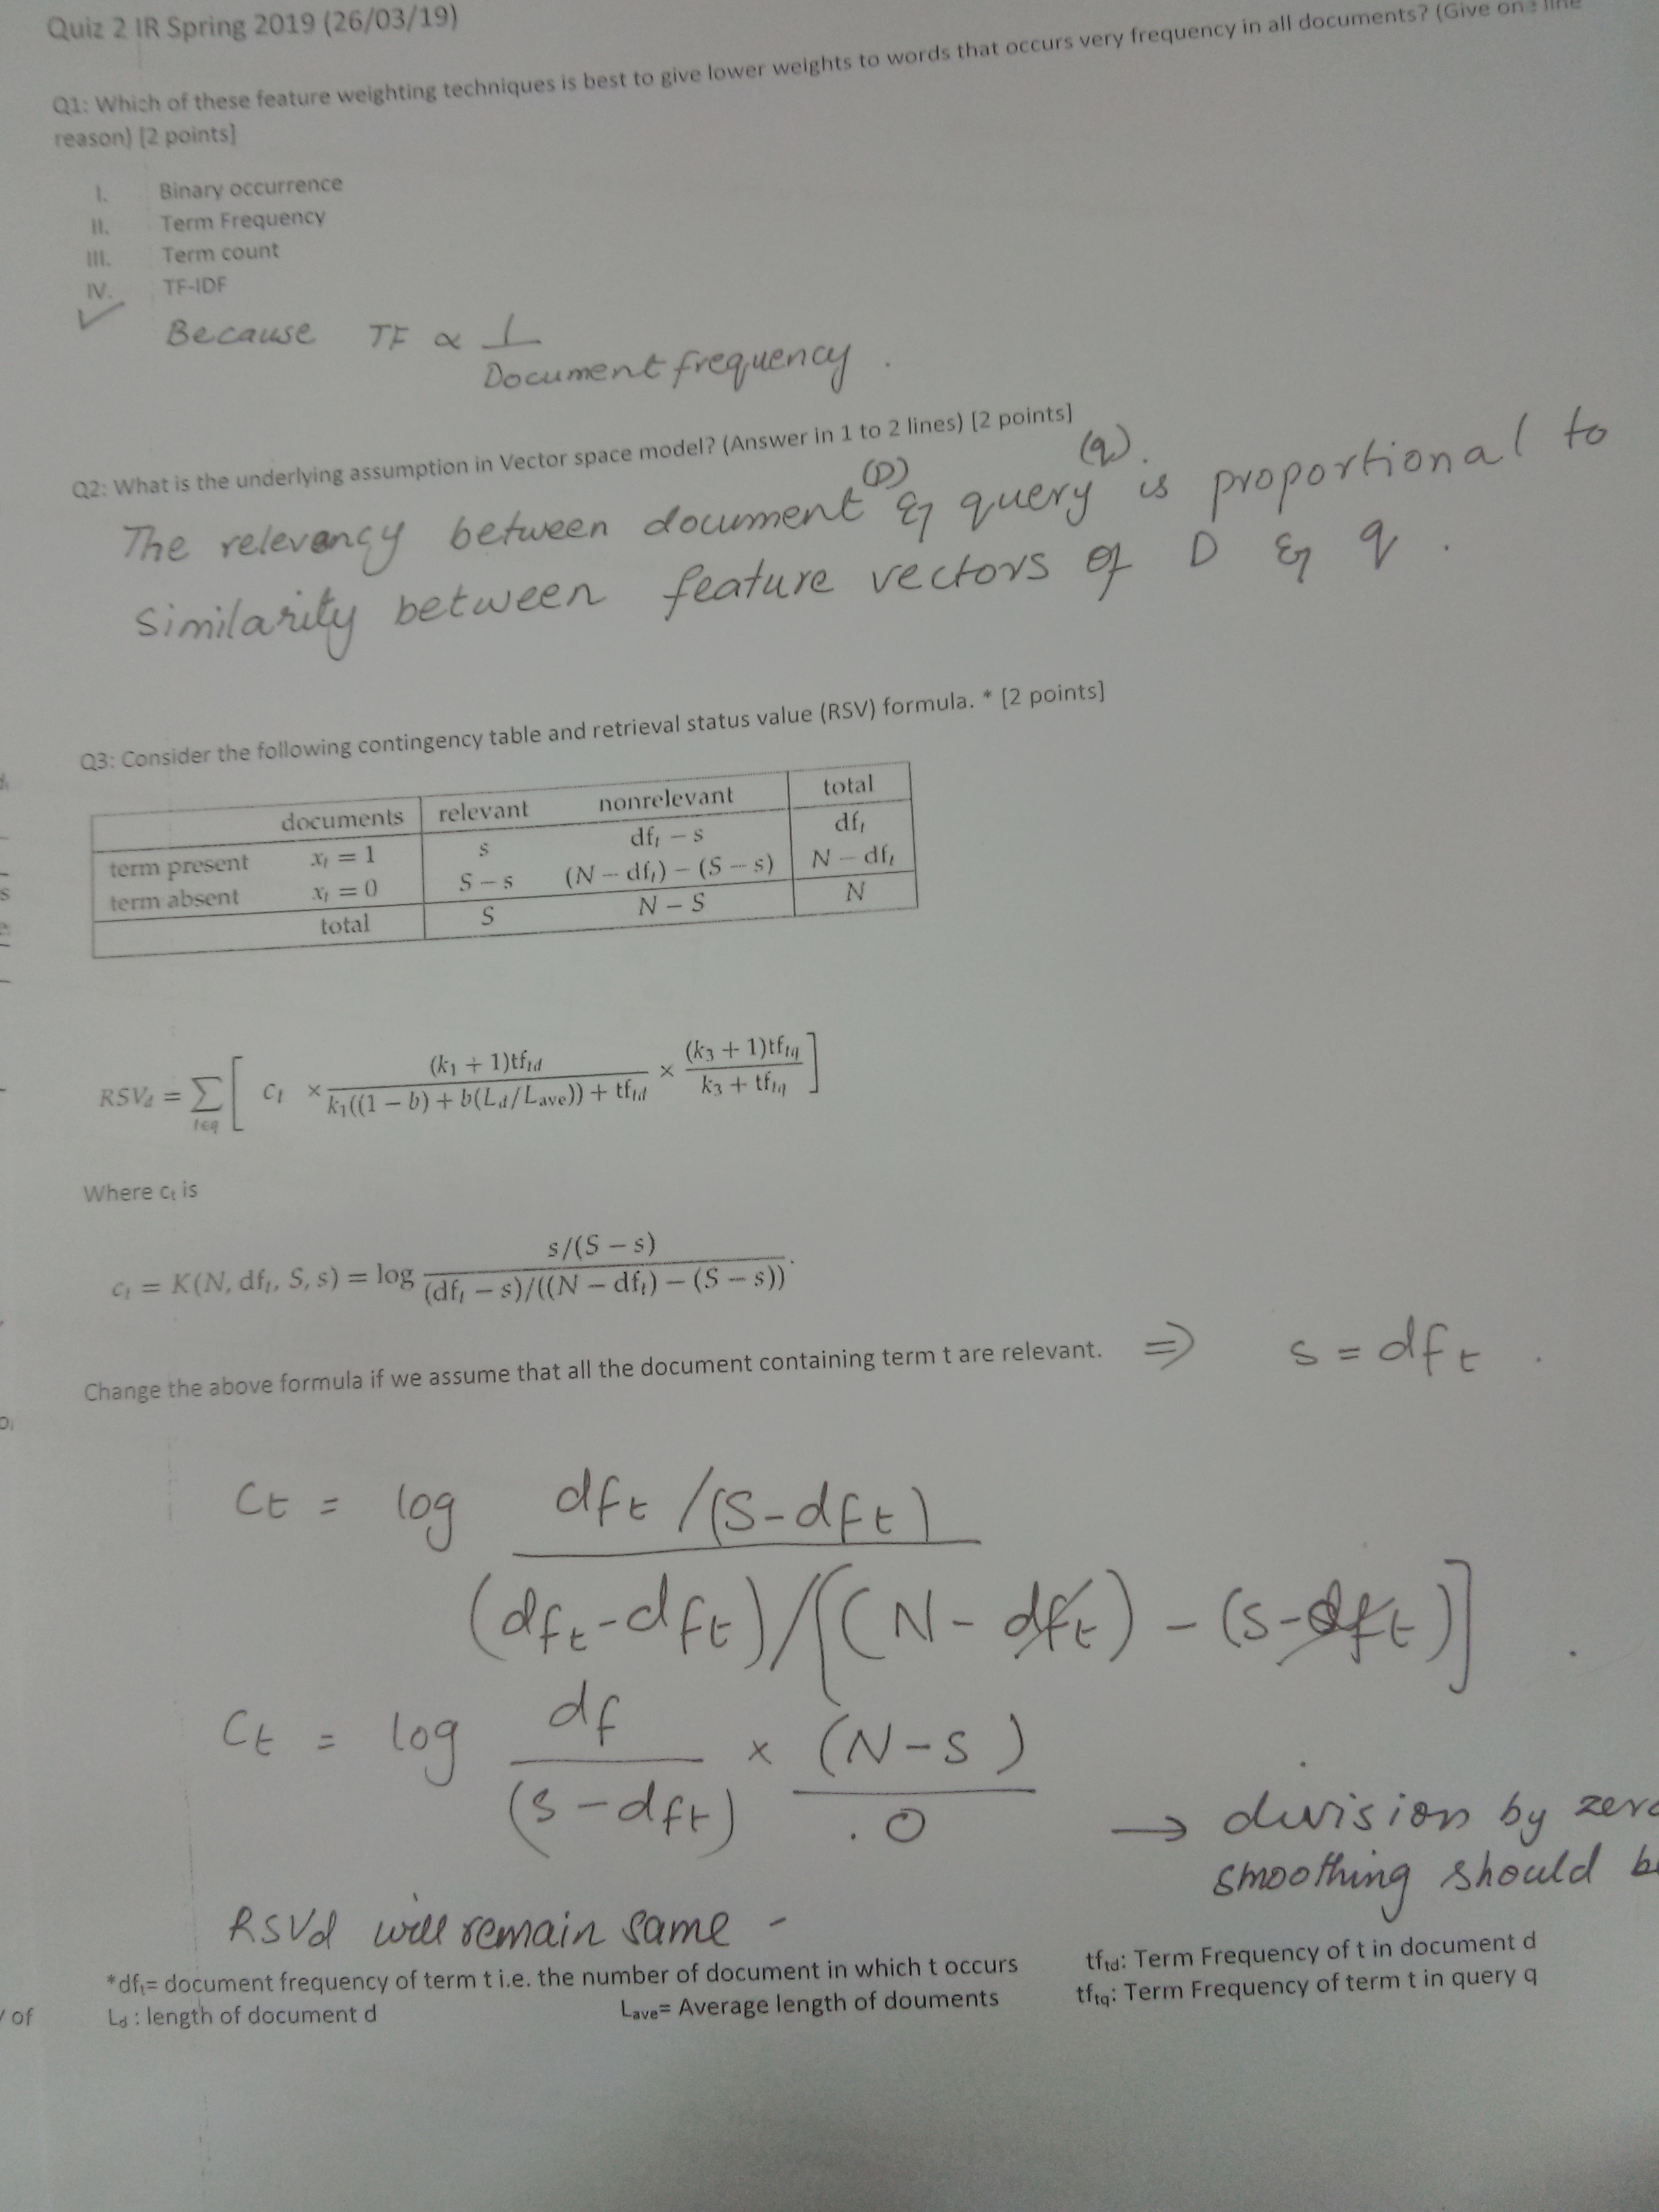 Quiz 2 IR Spring 2019 (26/03/19)
Q1: Which of these feature weighting techniques is best to give lower weights to words that occurs very frequency in all documents? (Give one line
reason) [2 points]
I. Binary occurrence
II. Term Frequency
III. Term count
IV. TF-IDF
✓
Because TF ∝ 1 / Document frequency .
Q2: What is the underlying assumption in Vector space model? (Answer in 1 to 2 lines) [2 points]
The relevancy between document (D) & query (q). is proportional to
Similarity between feature vectors of D & q .
Q3: Consider the following contingency table and retrieval status value (RSV) formula. * [2 points]
documents relevant nonrelevant total
term present xₜ = 1 s dfₜ − s dfₜ
term absent xₜ = 0 S − s (N − dfₜ) − (S − s) N − dfₜ
total S N − S N
RSV_d = ∑_{t∈q} [ cₜ × (k₁ + 1)tf_td / k₁((1 − b) + b(L_d/L_ave)) + tf_td × (k₃ + 1)tf_tq / k₃ + tf_tq ]
Where cₜ is
cₜ = K(N, dfₜ, S, s) = log s/(S − s) / (dfₜ − s)/((N − dfₜ) − (S − s)) .
Change the above formula if we assume that all the document containing term t are relevant. ⇒ s = dfₜ .
Cₜ = log dfₜ /(S-dfₜ) / (dfₜ-dfₜ)/[(N - dfₜ) - (s-dfₜ)] .
Cₜ = log df / (s-dfₜ) × (N-s) / .0 → division by zero
smoothing should
RSVd will remain same -
*dfₜ= document frequency of term t i.e. the number of document in which t occurs tf_td: Term Frequency of t in document d
L_d : length of document d L_ave= Average length of douments tf_tq: Term Frequency of term t in query q
of